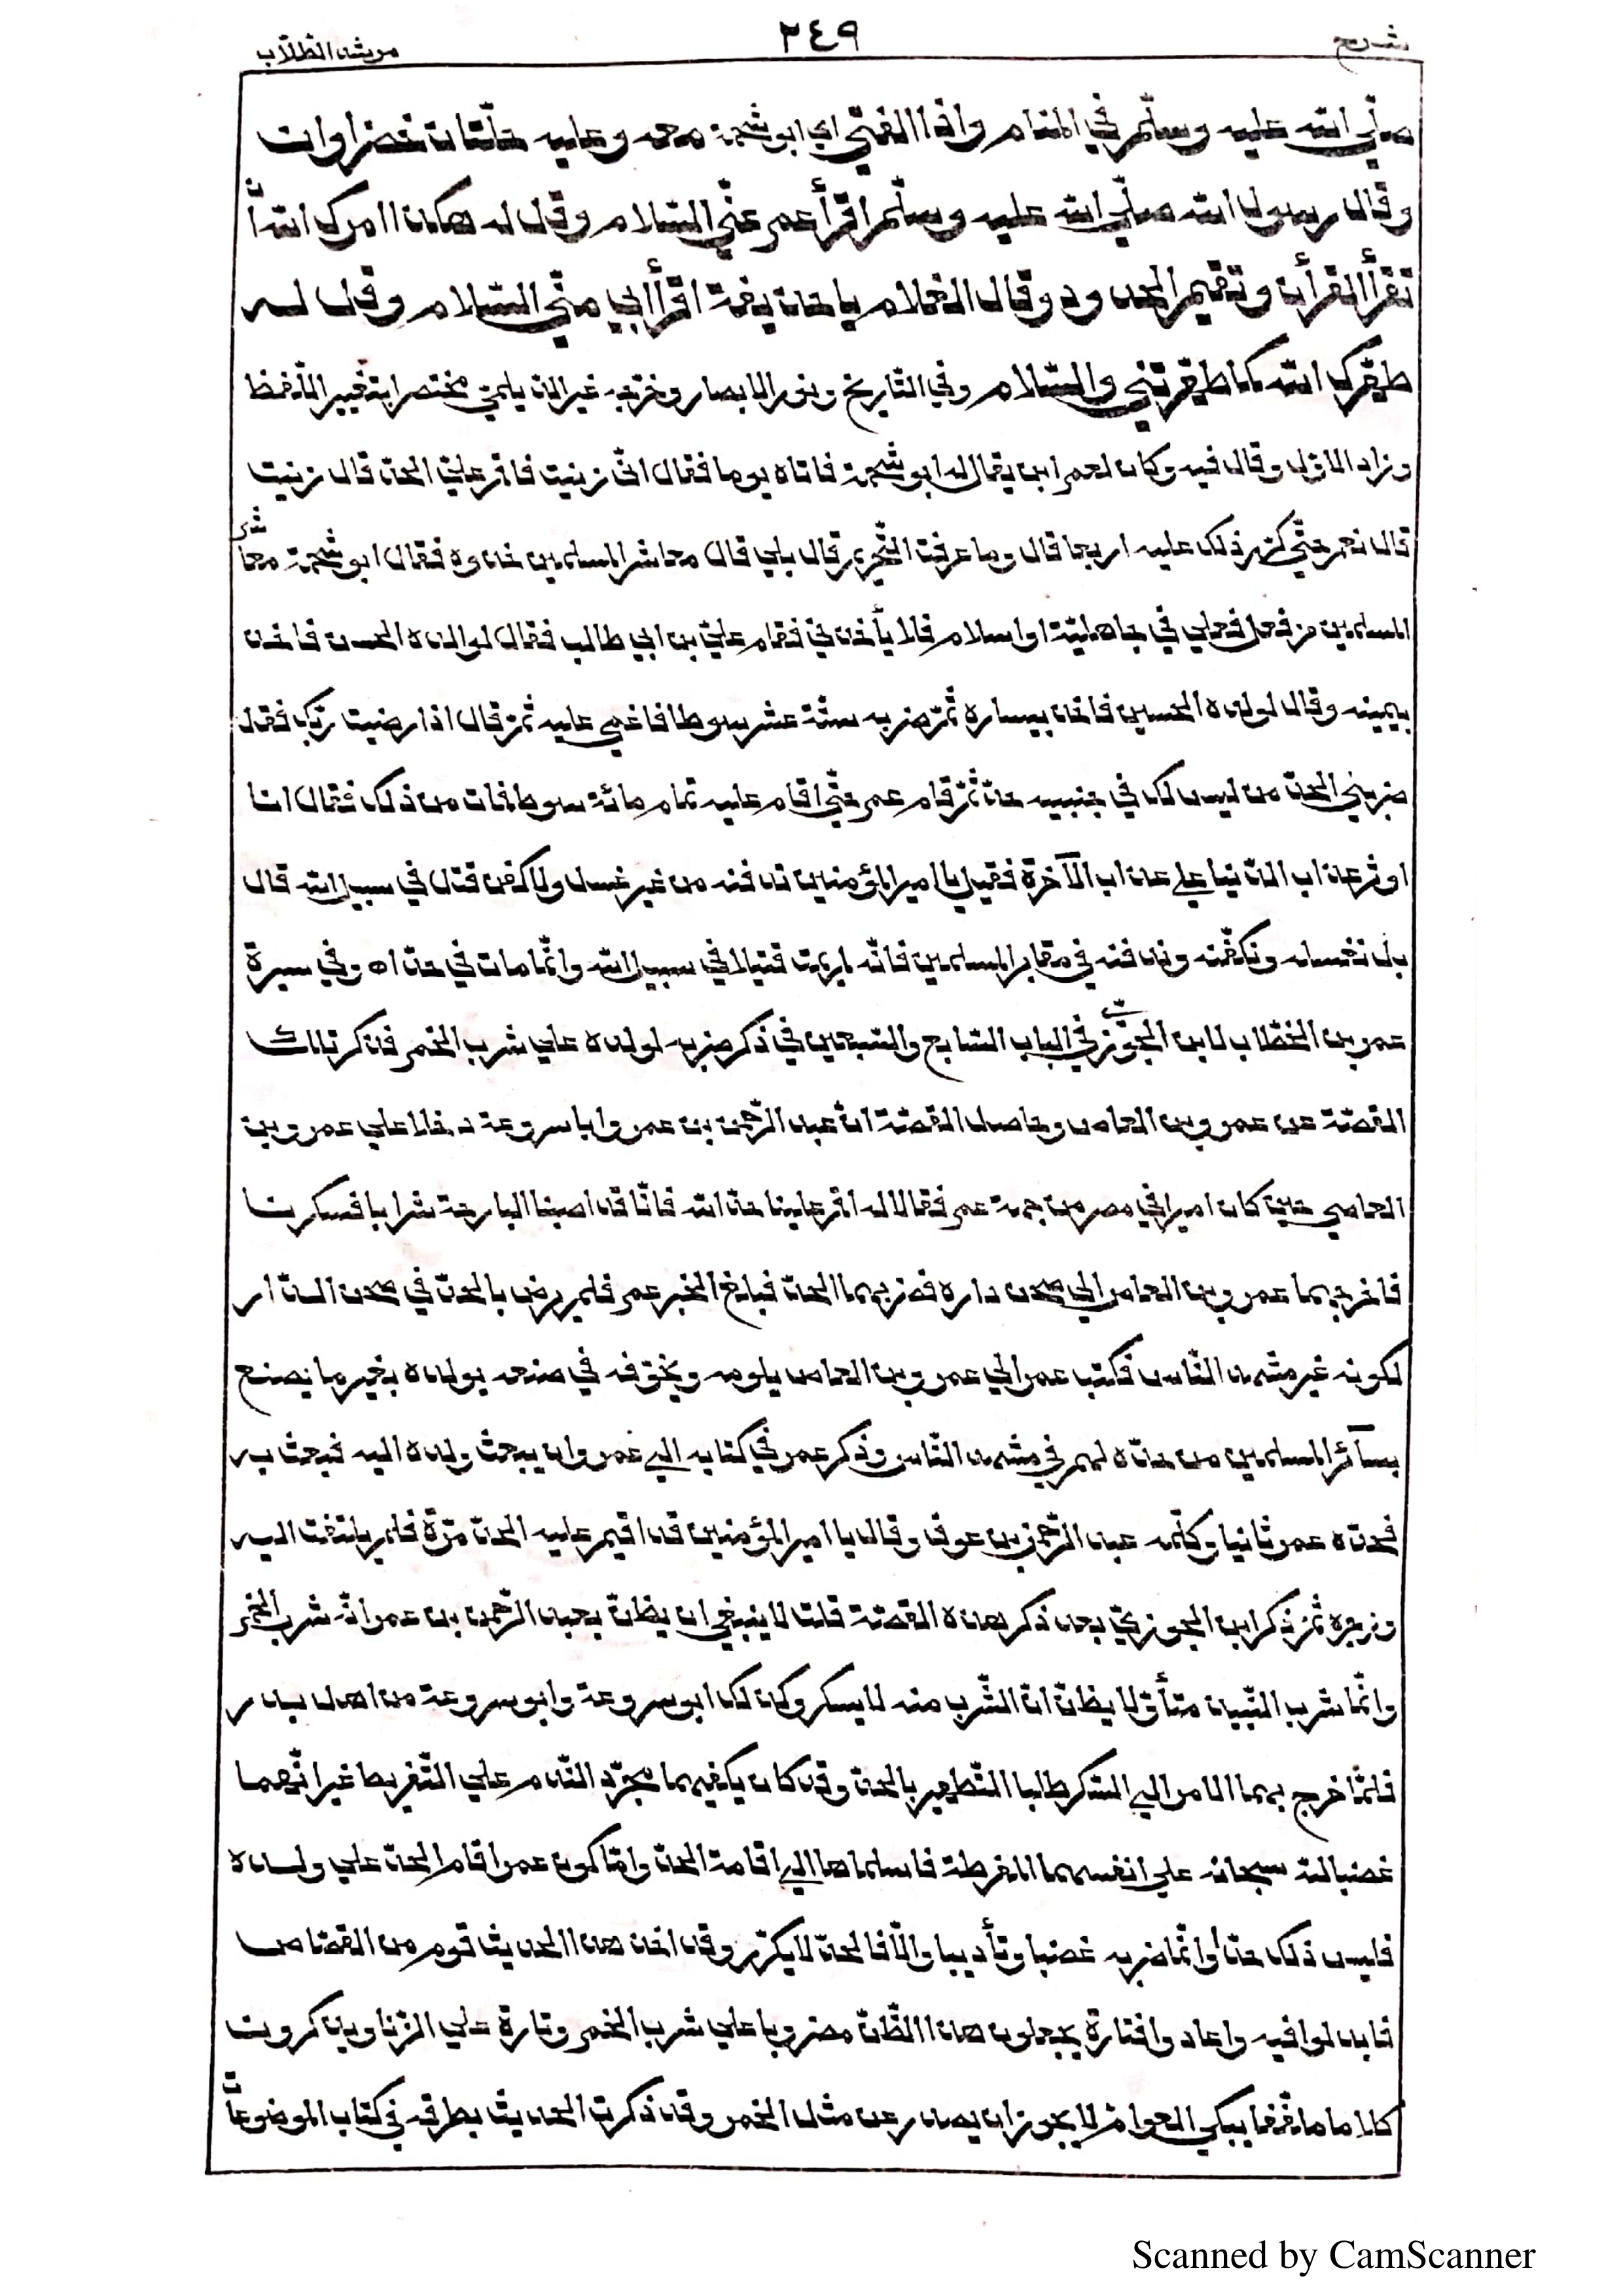 شرح
٢٤٩
مرشد الطلّاب
صلّي الله عليه وسلّم في المنام واذا الفتي اي ابو شحمة معه وعليه حلّتان خضراوان
وقال رسول الله صلّي الله عليه وسلّم اقرأ عمر عنّي السّلام وقل له هكذا امرك الله أن
تقرأ القرأن وتقيم الحدود وقال الغلام يا حذيفة اقرأ ابي منّي السّلام وقل له
طهّرك الله كما طهّرتني والسّلام وفي التّاريخ ونور الابصار وخرّجه غير الدّيلمي مختصرا بتغيير اللّفظ
وزاد الاوّل وقال فيه وكان لعمر ابن يقال له ابو شحمة فاتاه يوما فقال انّي زنيت فاقم عليّ الحدّ قال زنيت
قال نعم حتّي كرّر ذلك عليه اربعا قال وما عرفت التّحريم قال بلي قال معاشر المسلمين خذوه فقال ابو شحمة معاشر
المسلمين من فعل فعلي في جاهليّة او اسلام فلا يأخذني فقام عليّ بن ابي طالب فقال لولده الحسن فاخذ
بيمينه وقال لولده الحسين فاخذ بيساره ثمّ ضربه ستّة عشر سوطا فاغمي عليه ثمّ قال اذا رضيت ربّك فقل
ضربني الحدّ من ليس لك في جنبيه حدّ ثمّ قام عمر حتّي اقام عليه تمام مائة سوط فمات من ذلك فقال انا
اوثر عذاب الدّنيا علي عذاب الآخرة فقيل يا امير المؤمنين تدفنه من غير غسل ولا كفن قتل في سبيل الله قال
بل نغسله ونكفّنه وندفنه في مقابر المسلمين فانّه لم يمت قتيلا في سبيل الله وانّما مات في حدّ اه وفي سيرة
عمر بن الخطّاب لابن الجوزيّ في الباب السّابع والسّبعين في ذكر ضربه لولده علي شرب الخمر فذكر تلك
القصّة عن عمرو بن العاص وحاصل القصّة انّ عبد الرّحمن بن عمر وابا سروعة دخلا علي عمرو بن
العاصي حين كان اميرا في مصر من جهة عمر فقالا له اقم علينا حدّ الله فانّا قد اصبنا البارحة شرابا فسكرنا
فاخرجهما عمرو بن العاص الي صحن داره فضربهما الحدّ فبلغ الخبر عمر فلم يرض بالحدّ في صحن الدّار
لكونه غير مشهد النّاس فكتب عمر الي عمرو بن العاص يلومه ويخوّفه في صنعه بولده بغير ما يصنع
بسآئر المسلمين من حدّه لهم في مشهد النّاس وذكر عمر في كتابه الي عمرو ان يبعث ولده اليه فبعث به
فحدّه عمر ثانيا وكلّمه عبد الرّحمن بن عوف وقال يا امير المؤمنين قد اقيم عليه الحدّ مرّة فلم يلتفت اليه
وزجره ثمّ ذكر ابن الجوزيّ بعد ذكر هذه القصّة قلت لا ينبغي ان يظنّ بعبد الرّحمن بن عمر انّه شرب الخمر
وانّما شرب النّبيذ متأوّلا يظنّ انّ الشّرب منه لا يسكر وكذلك ابو سروعة وابو سروعة من اهل بدر
فلمّا خرج بهما الامر الي السّكر طلبا التّطهير بالحدّ وقد كان يكفيهما مجرّد النّدم علي التّفريط غير انّهما
غضبا لله سبحانه علي انفسهما المفرطة فاسلماها الي اقامة الحدّ وامّا كون عمر اقام الحدّ علي ولده
فليس ذلك حدّا وانّما ضربه غضبا وتأديبا والّا فالحدّ لا يكرّر وقد اخذ هذا الحديث قوم من القصّاص
فابدلوا فيه واعادوا فتارة يجعلون هذا الظّنّ مضروبا علي شرب الخمر وتارة علي الزّنا ويذكرون
كلاما ملفّقا يبكي العوامّ لا يجوز ان يصدر عن مثل الخمر وقد ذكرت الحديث بطرقه في كتاب الموضوعات
Scanned by CamScanner